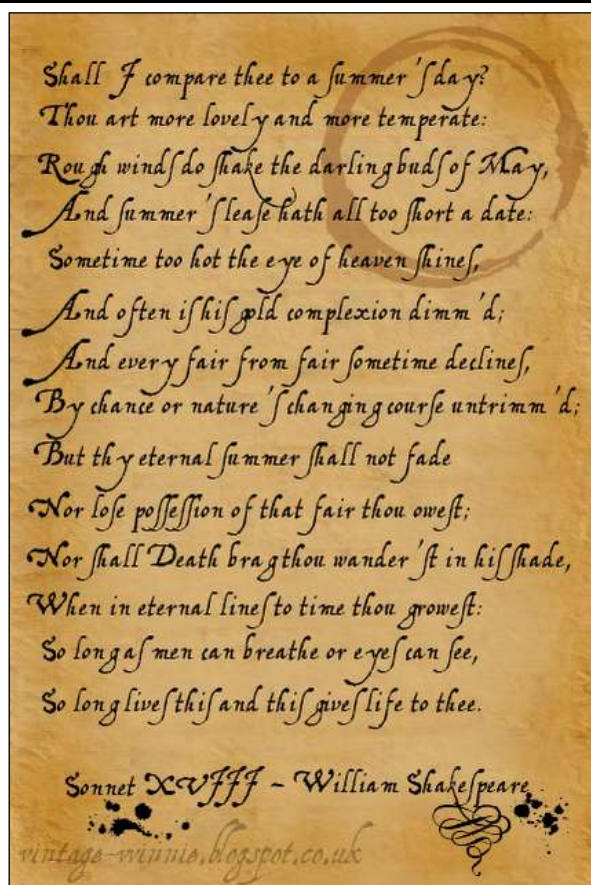 Shall I compare thee to a ſummer'ſ day?
Thou art more lovely and more temperate:
Rough windſ do ſhake the darling budſ of May,
And ſummer'ſ leaſe hath all too ſhort a date:
Sometime too hot the eye of heaven ſhineſ,
And often iſ hiſ gold complexion dimm'd;
And every fair from fair ſometime declineſ,
By chance or nature'ſ changing courſe untrimm'd;
But thy eternal ſummer ſhall not fade
Nor loſe poſſeſſion of that fair thou oweſt;
Nor ſhall Death brag thou wander'ſt in hiſ ſhade,
When in eternal lineſ to time thou groweſt:
So long aſ men can breathe or eyeſ can ſee,
So long liveſ thiſ and thiſ giveſ life to thee.
Sonnet XVIII - William Shakeſpeare
vintage-winnie.blogspot.co.uk